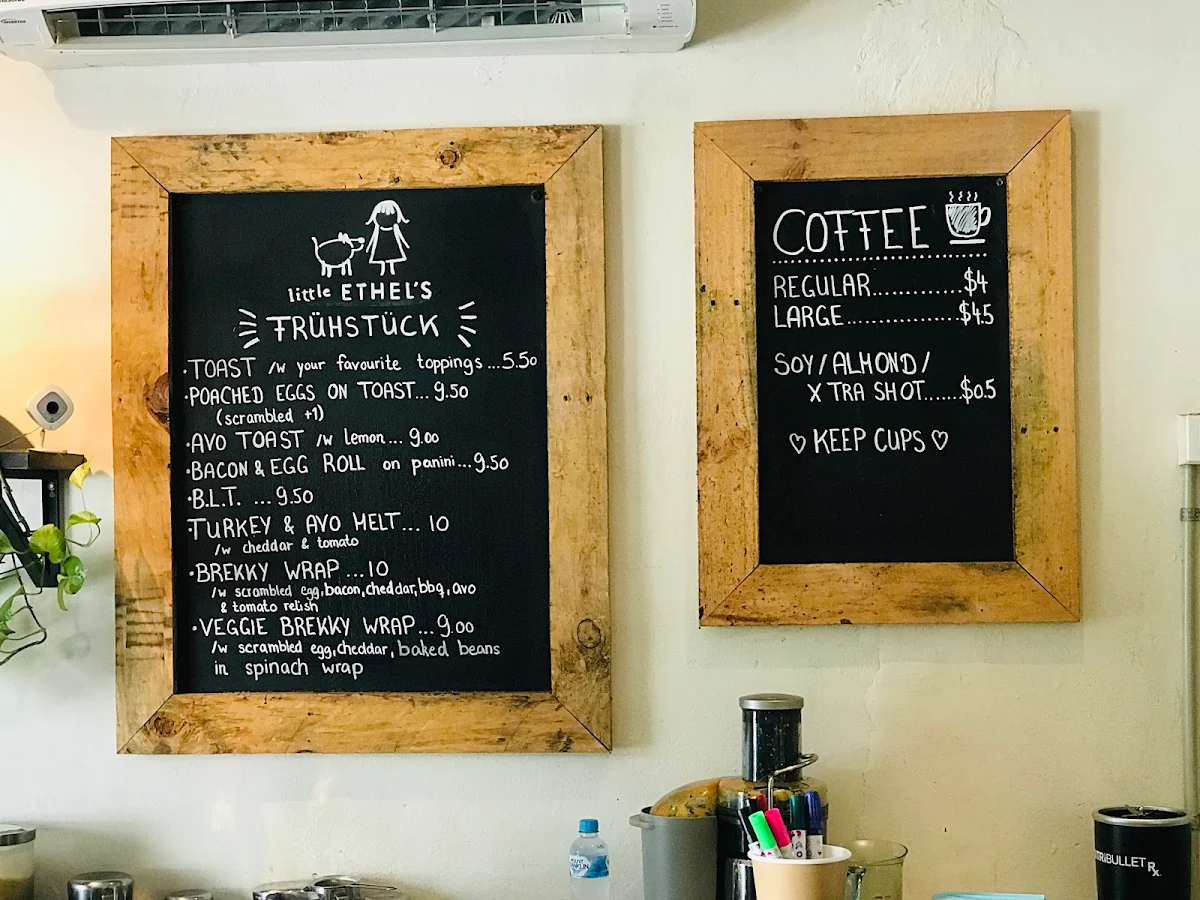 little ETHEL'S
FRÜHSTÜCK
·TOAST /w your favourite toppings...5.50
·POACHED EGGS ON TOAST... 9.50
(scrambled +1)
·AVO TOAST /w lemon... 9.00
·BACON & EGG ROLL on panini...9.50
·B.L.T. ...9.50
·TURKEY & AVO MELT... 10
/w cheddar & tomato
·BREKKY WRAP ...10
/w scrambled egg, bacon, cheddar, bbq, avo
& tomato relish
·VEGGIE BREKKY WRAP...9.00
/w scrambled egg, cheddar, baked beans
in spinach wrap
COFFEE
REGULAR............$4
LARGE...............$4.5
SOY/ALMOND/
X TRA SHOT.......$0.5
♡ KEEP CUPS ♡
MOUNT
FRANKLIN
TRIBULLET Rx